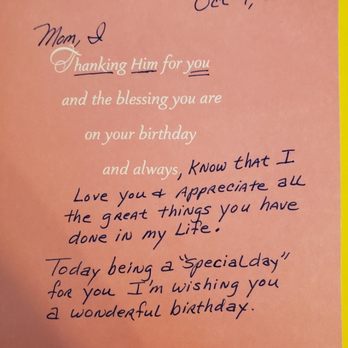 Oct
Mom, I
Thanking Him for you
and the blessing you are
on your birthday
and always, KNOW that I
Love you & Appreciate all
the great things you have
done in my Life.
Today being a "Special day"
for you I'm wishing you
a wonderful birthday.